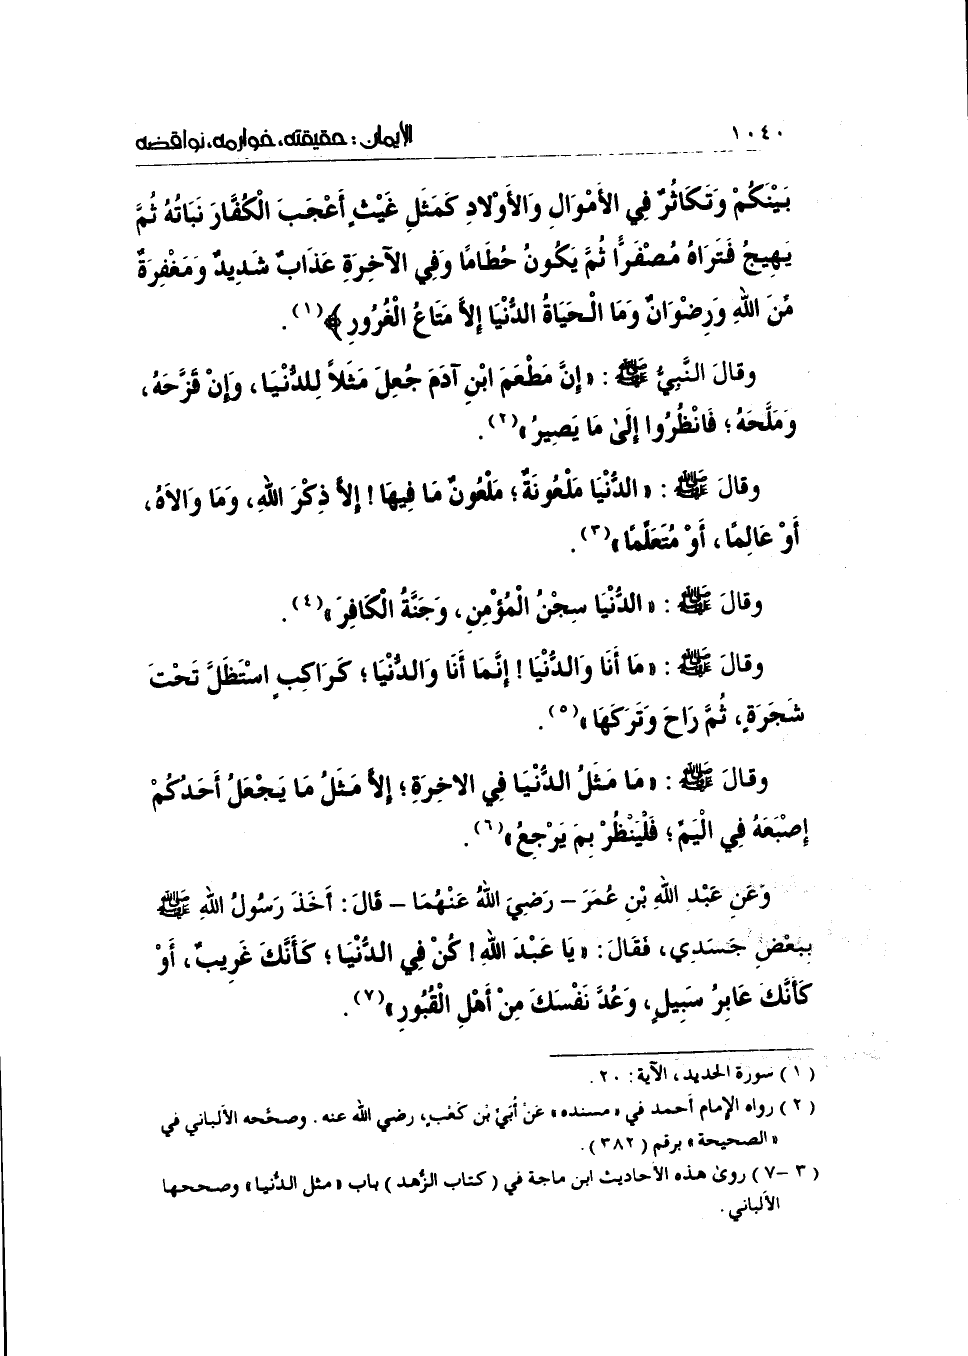 ١٠٤٠ الإيمان: حقيقته، خوارمه، نواقضه
بَيْنَكُمْ وَتَكَاثُرٌ فِي الأَمْوَالِ وَالأَوْلادِ كَمَثَلِ غَيْثٍ أَعْجَبَ الْكُفَّارَ نَبَاتُهُ ثُمَّ
يَهِيجُ فَتَرَاهُ مُصْفَرًّا ثُمَّ يَكُونُ حُطَامًا وَفِي الآخِرَةِ عَذَابٌ شَدِيدٌ وَمَغْفِرَةٌ
مِّنَ اللهِ وَرِضْوَانٌ وَمَا الْحَيَاةُ الدُّنْيَا إِلاَّ مَتَاعُ الْغُرُورِ﴾(١).
وقالَ النَّبِيُّ ﷺ: «إِنَّ مَطْعَمَ ابْنِ آدَمَ جُعِلَ مَثَلاً لِلدُّنْيَا، وَإِنْ قَزَّحَهُ،
وَمَلَّحَهُ؛ فَانْظُرُوا إِلَىٰ مَا يَصِيرُ»(٢).
وقالَ ﷺ: «الدُّنْيَا مَلْعُونَةٌ؛ مَلْعُونٌ مَا فِيهَا! إِلاَّ ذِكْرَ اللهِ، وَمَا وَالاَهُ،
أَوْ عَالِمًا، أَوْ مُتَعَلِّمًا»(٣).
وقالَ ﷺ: «الدُّنْيَا سِجْنُ الْمُؤْمِنِ، وَجَنَّةُ الْكَافِرَ»(٤).
وقالَ ﷺ: «مَا أَنَا وَالدُّنْيَا! إِنَّمَا أَنَا وَالدُّنْيَا؛ كَرَاكِبٍ اسْتَظَلَّ تَحْتَ
شَجَرَةٍ، ثُمَّ رَاحَ وَتَرَكَهَا»(٥).
وقالَ ﷺ: «مَا مَثَلُ الدُّنْيَا فِي الاخِرَةِ؛ إِلاَّ مَثَلُ مَا يَجْعَلُ أَحَدُكُمْ
إِصْبَعَهُ فِي الْيَمِّ؛ فَلْيَنْظُرْ بِمَ يَرْجِعُ»(٦).
وَعَنِ عَبْدِ اللهِ بْنِ عُمَرَ – رَضِيَ اللهُ عَنْهُمَا – قَالَ: أَخَذَ رَسُولُ اللهِ ﷺ
بِبَعْضِ جَسَدِي، فَقَالَ: «يَا عَبْدَ اللهِ! كُنْ فِي الدُّنْيَا؛ كَأَنَّكَ غَرِيبٌ، أَوْ
كَأَنَّكَ عَابِرُ سَبِيلٍ، وَعُدَّ نَفْسَكَ مِنْ أَهْلِ الْقُبُورِ»(٧).
(١) سورة الحديد، الآية: ٢٠.
(٢) رواه الإمام أحمد في «مسنده» عَنْ أُبَيّ بْن كَعْبٍ، رضي الله عنه. وصحَّحه الألباني في
«الصحيحة» برقم (٣٨٢).
(٣–٧) روىٰ هذه الأحاديث ابن ماجة في (كتاب الزُّهد) باب «مثل الدُّنيا» وصححها
الألباني.